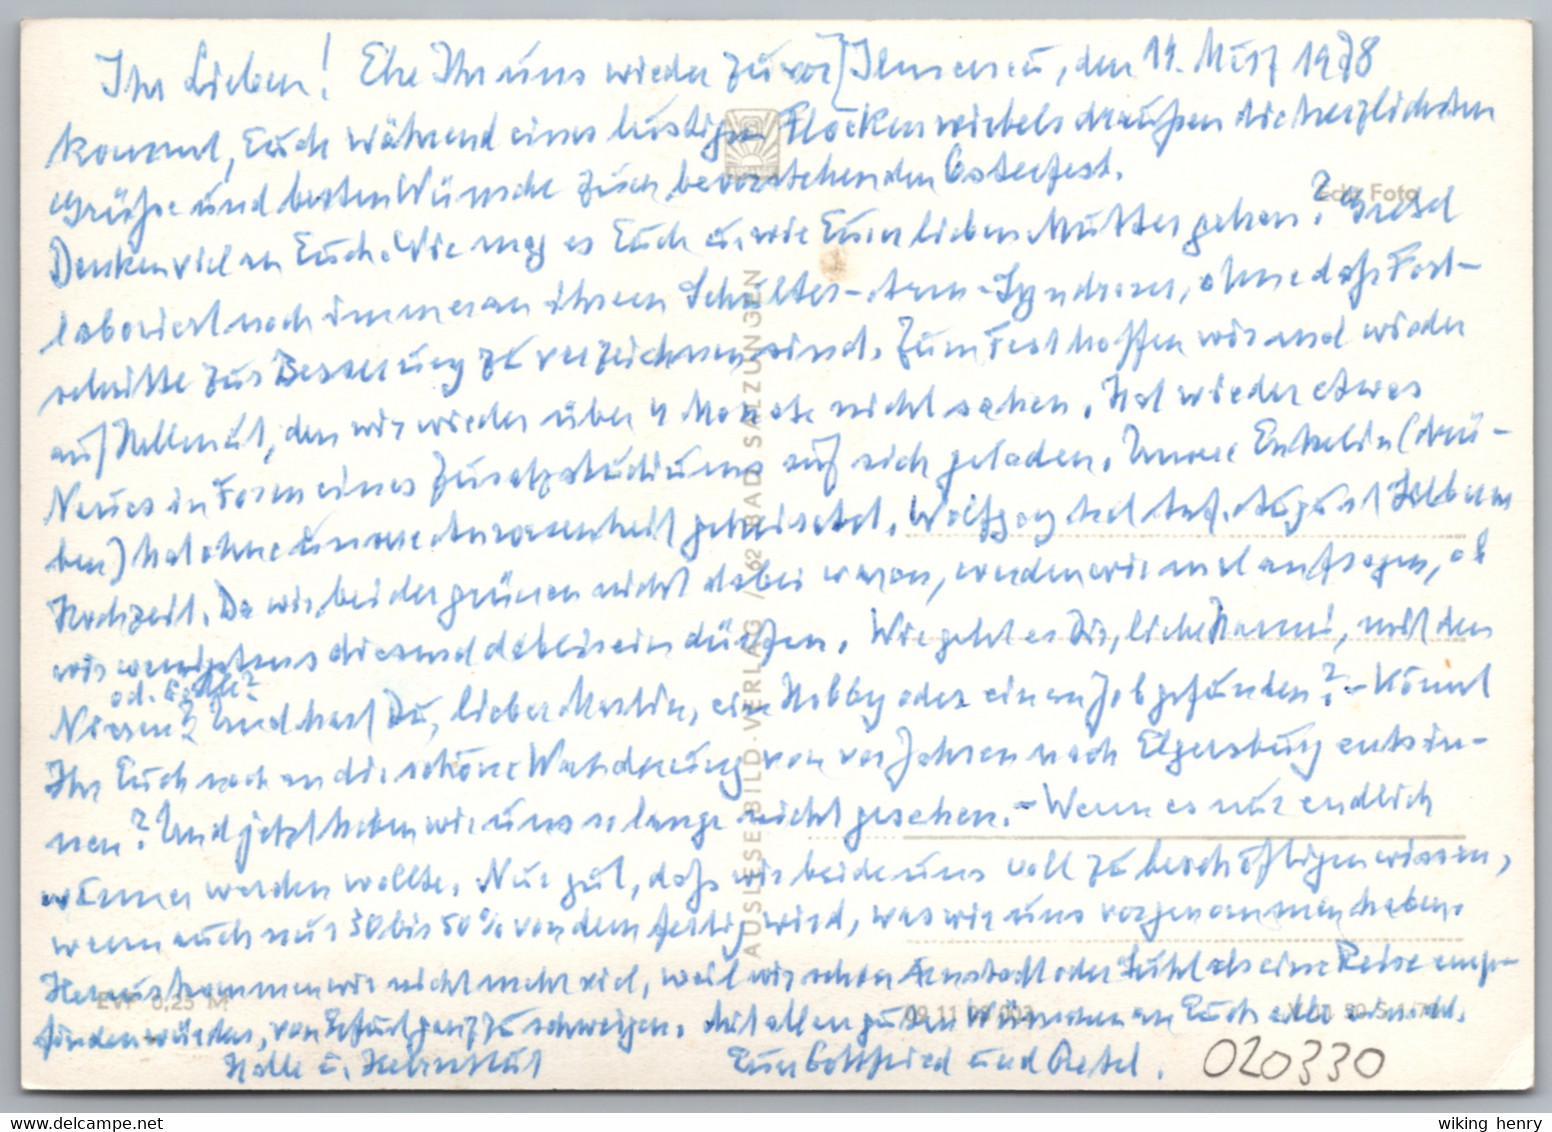 Ihr Lieben! Ehe Ihr uns wieder zuvor / Ilmenau, den 14. März 1978
kommt, Euch während eines lustigen Flockenwirbels draußen die herzlichsten
Grüße und besten Wünsche zum bevorstehenden Osterfest.
Echt Foto
Denken viel an Euch. Wie mag es Euch u. wie Eurer lieben Mutter gehen? Gretel
laboriert noch immer an ihrem Schulter-Arm-Syndrom, ohne daß Fort-
schritte zur Besserung zu verzeichnen sind. Zum Fest hoffen wir und wieder
auf Hellmut, den wir wieder über 4 Monate nicht sahen. Hat wieder etwas
Neues in Form eines Zusatzstudiums auf sich geladen. Unsere Enkelin (drü-
ben) hat ohne unsere Anwesenheit geheiratet. Wolfgang hat Anf. August Silberne
Hochzeit. Da wir bei der grünen nicht dabei waren, werden wir mal anfragen, ob
wir wenigstens diesmal dabei sein dürfen. Wie geht es Dir, liebe Hanni, mit den
Nieren? Und hast Du, lieber Martin, ein Hobby oder einen Job gefunden? - Könnt
Ihr Euch noch an die schöne Wanderung von vor Jahren nach Elgersburg entsin-
nen? Und jetzt haben wir uns so lange nicht gesehen. - Wenn es nur endlich
wärmer werden wollte. Nur gut, daß wir beide uns voll zu beschäftigen wissen,
wenn auch nur 30 bis 50% von dem fertig wird, was wir uns vorgenommen haben.
Heraus kommen wir nicht mehr viel, weil wir schon Arnstadt oder Suhl als eine Reise emp-
finden würden, von Erfurt ganz zu schweigen. Mit allen guten Wünschen an Euch alle
Halle u.
Euer Gottfried und Gretel.
AUSLESE-BILD-VERLAG / 62 BAD SALZUNGEN
EVP 0,25 M
09 11 09 003
020330
wiking henry